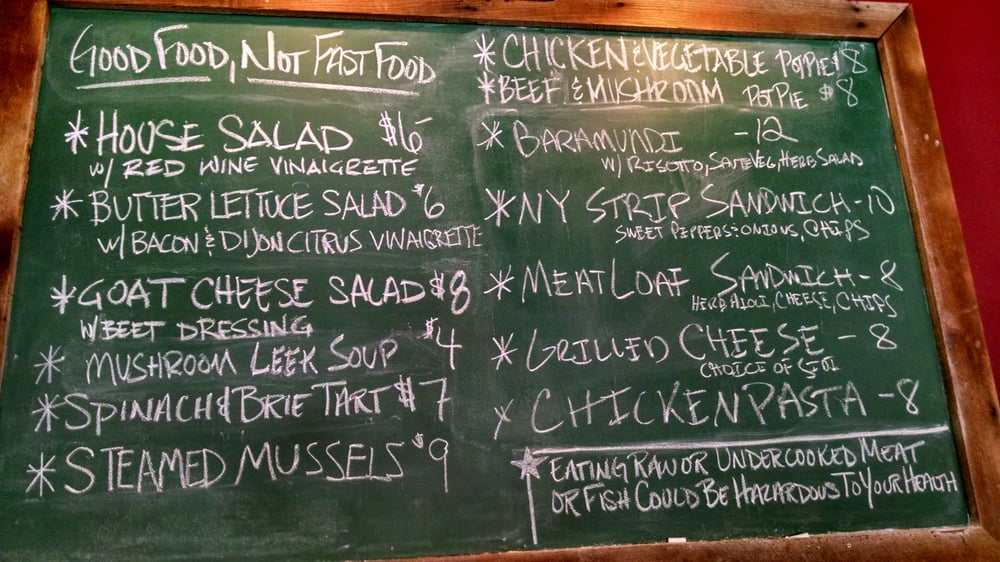 GOOD FOOD, NOT FAST FOOD
* HOUSE SALAD $6
W/ RED WINE VINAIGRETTE
* BUTTER LETTUCE SALAD $6
W/ BACON & DIJON CITRUS VINAIGRETTE
* GOAT CHEESE SALAD $8
W/ BEET DRESSING
* MUSHROOM LEEK SOUP $4
* SPINACH & BRIE TART $7
* STEAMED MUSSELS $9
* CHICKEN & VEGETABLE POTPIE $8
* BEEF & MUSHROOM POTPIE $8
* BARAMUNDI -12
W/ RISOTTO, SAUTE VEG, HERB SALAD
* NY STRIP SANDWICH -10
SWEET PEPPERS & ONIONS, CHIPS
* MEATLOAF SANDWICH - 8
HERB AIOLI, CHEESE, CHIPS
* GRILLED CHEESE - 8
CHOICE OF
* CHICKEN PASTA - 8
★ EATING RAW OR UNDERCOOKED MEAT
OR FISH COULD BE HAZARDOUS TO YOUR HEALTH